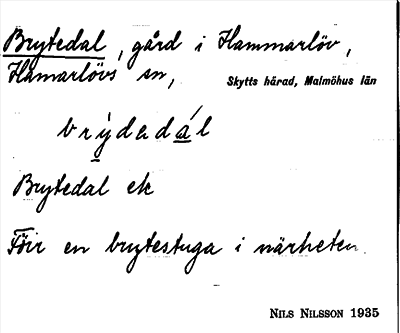 Brytedal, gård i Hammarlöv,
Hamarlövs sn, Skytts härad, Malmöhus län
brýdedál
Brytedal ek
Förr en brytestuga i närheten.
NILS NILSSON 1935